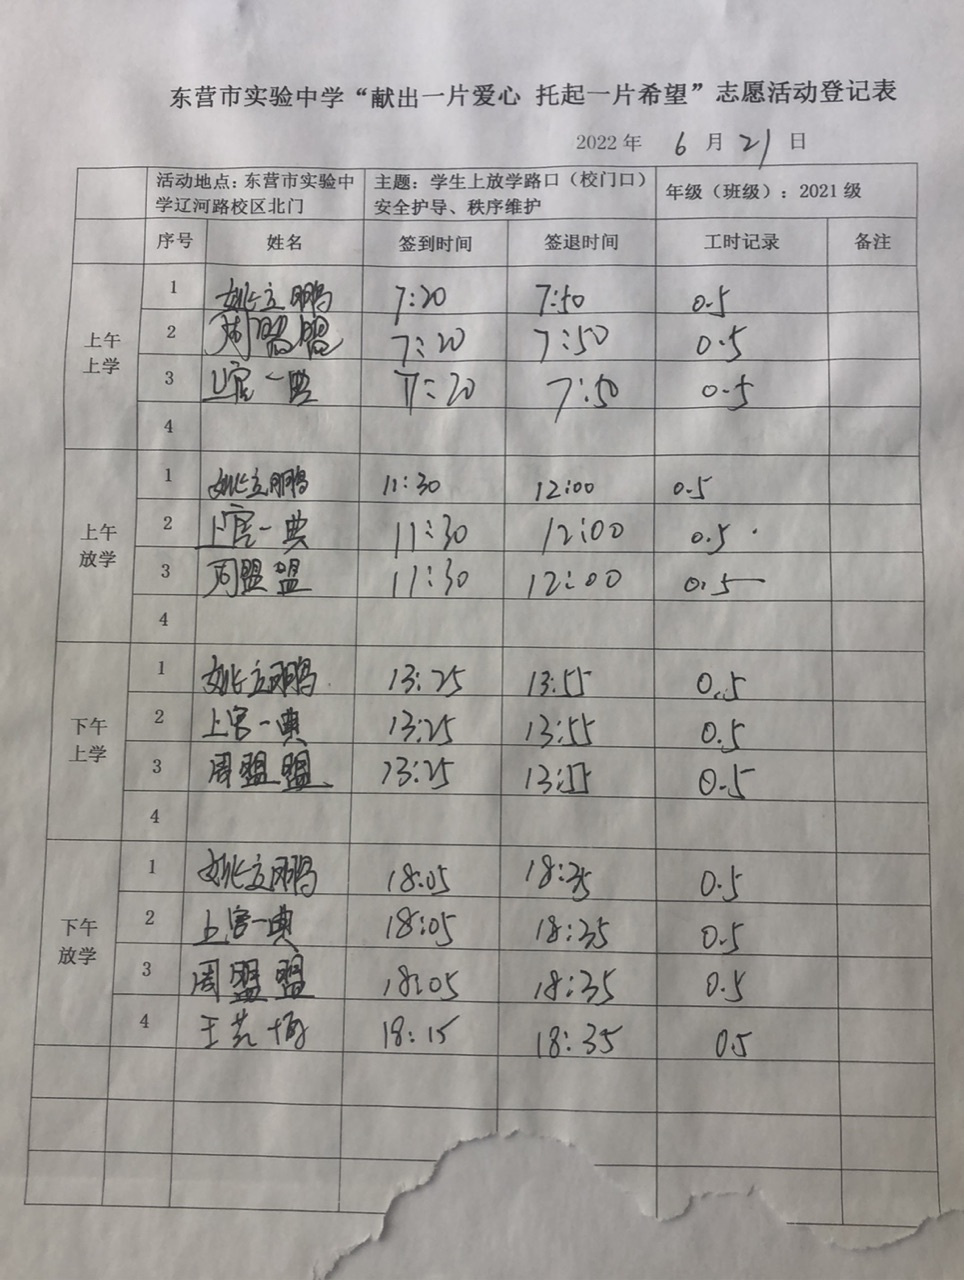 东营市实验中学“献出一片爱心 托起一片希望”志愿活动登记表
2022 年 6 月 21 日
活动地点：东营市实验中学辽河路校区北门 主题：学生上放学路口（校门口）安全护导、秩序维护 年级（班级）：2021 级
序号 姓名 签到时间 签退时间 工时记录 备注
上午上学
1 姚立鹏 7:20 7:50 0.5
2 周盟盟 7:20 7:50 0.5
3 上官一典 7:20 7:50 0.5
4
上午放学
1 姚立鹏 11:30 12:00 0.5
2 上官一典 11:30 12:00 0.5
3 周盟盟 11:30 12:00 0.5
4
下午上学
1 姚立鹏 13:25 13:55 0.5
2 上官一典 13:25 13:55 0.5
3 周盟盟 13:25 13:55 0.5
4
下午放学
1 姚立鹏 18:05 18:35 0.5
2 上官一典 18:05 18:35 0.5
3 周盟盟 18:05 18:35 0.5
4 王 18:15 18:35 0.5